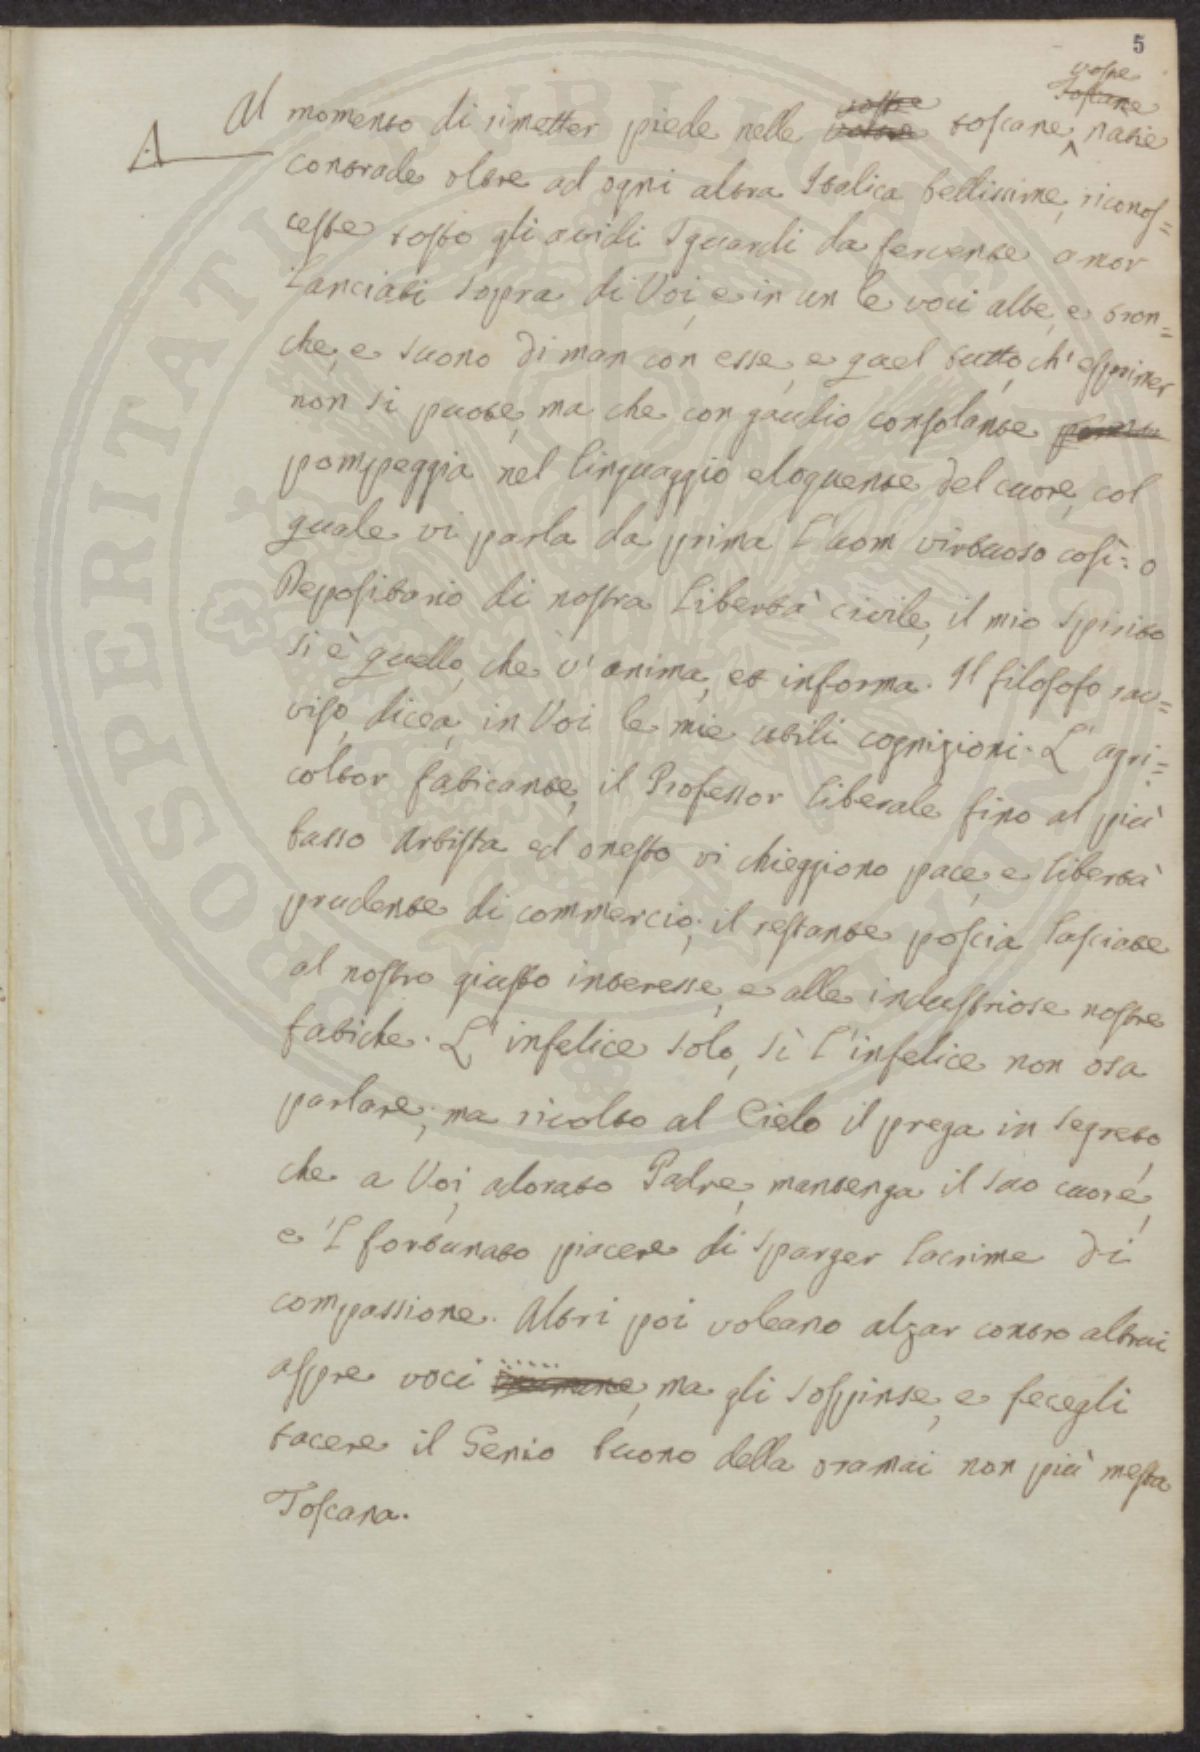 5
vostre
Toscane
vostre
Al momento di rimetter piede nelle vostre toscane, natie
A
contrade oltre ad ogni altra Italica bellissime, riconos=
ceste tosto gli avidi sguardi da fervente amor
lanciati sopra di Voi, e in un le voci alte, e tron=
che, e suono di man con esse, e quel tutto, ch' esprimer
non si puote, ma che con gaudio consolante
pompeggia nel linguaggio eloquente del cuore, col
quale vi parla da prima l'uom virtuoso così: o
Depositario di nostra libertà civile, il mio spirito
si è quello, che v' anima, et informa. Il filosofo rav=
viso, dicea, in Voi le mie utili cognizioni. L' agri=
coltor faticante, il Professor liberale fino al più
basso Artista ed onesto vi chieggiono pace, e libertà
prudente di commercio; il restante poscia lasciate
al nostro giusto interesse, e alle industriose nostre
fatiche. L' infelice solo, sì l'infelice non osa
parlare; ma rivolto al Cielo il prega in segreto,
che a Voi, adorato Padre, mantenga il suo cuore,
e 'l fortunato piacere di sparger lacrime di
compassione. Altri poi voleano alzar contro altrui
aspre voci, ma gli sospinse, e fecegli
tacere il Genio buono della oramai non più mesta
Toscana.
PROSPERITATI PUBLICAE